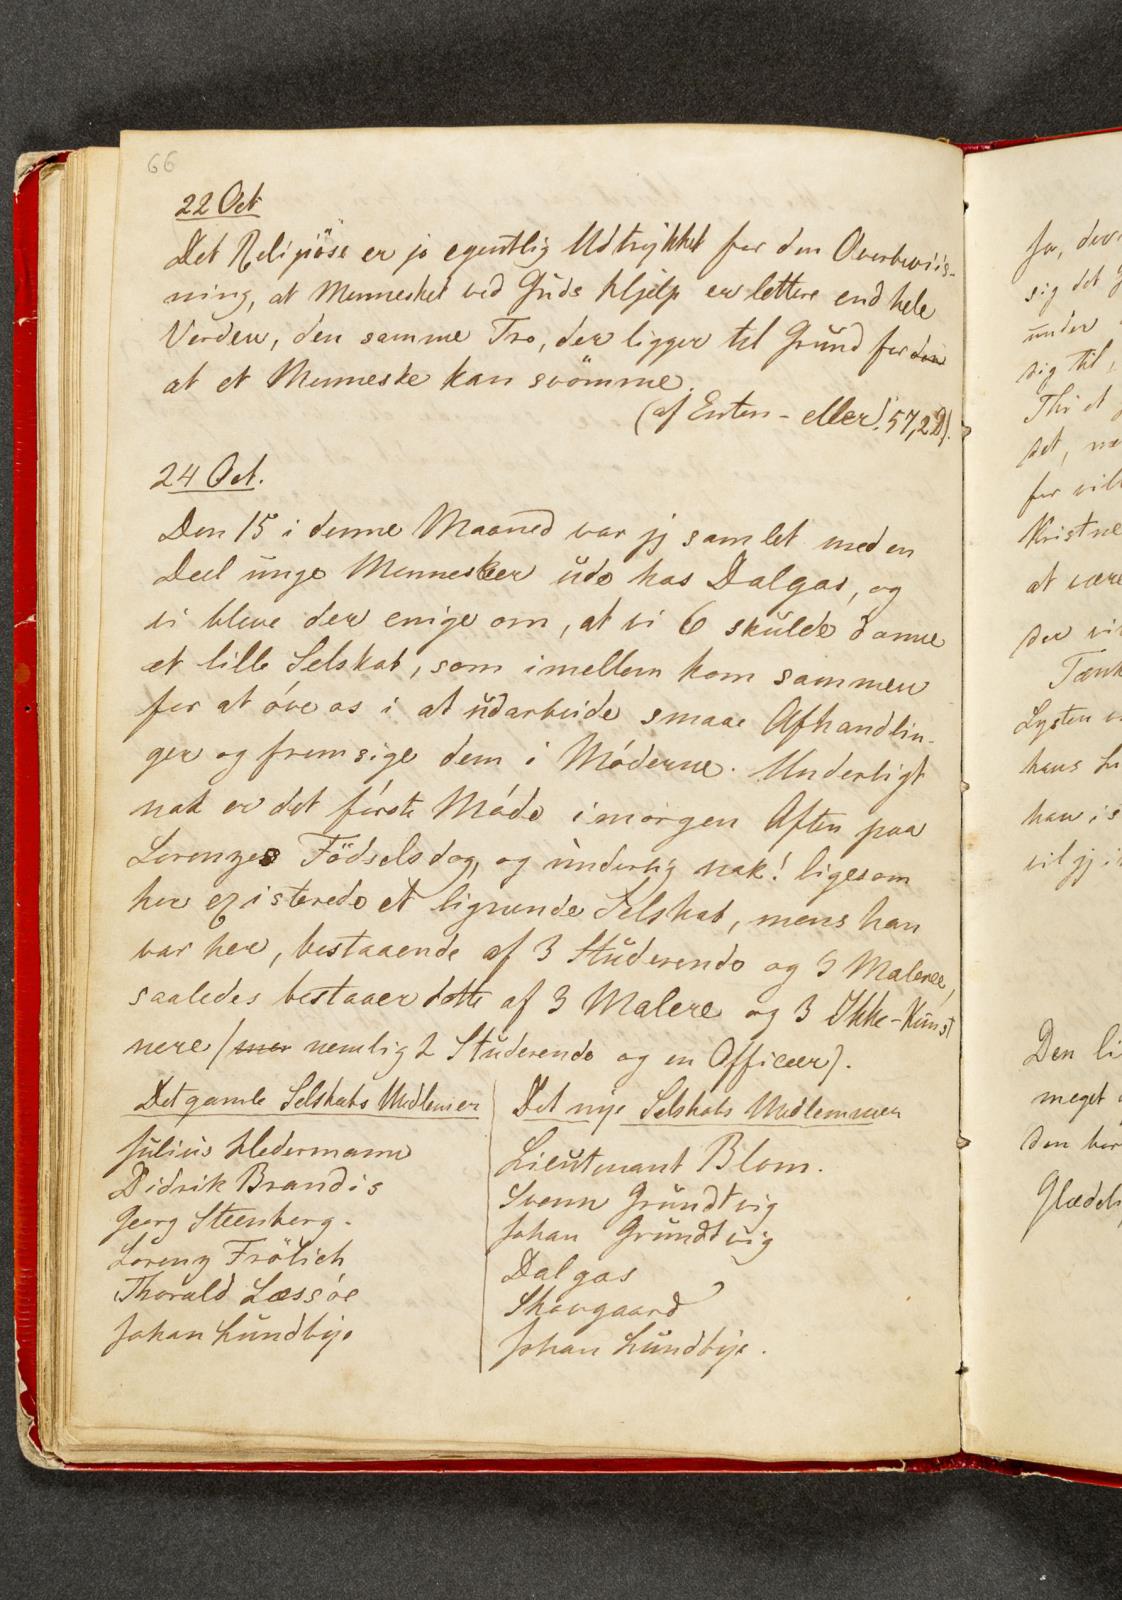 66
22 Oct
Det Religiöse er jo egentlig Udtrykket for den Overbeviis-
ning, at Mennesket ved Guds Hjelp er lettere end hele
Verden, den samme Tro, der ligger til Grund for den
at et Menneske kan svömme.
(af Enten - eller! 57, 2 D).
24 Oct.
Den 15 i denne Maaned var jeg samlet med en
Deel unge Mennesker ude hos Dalgas, og
vi bleve der enige om, at vi 6 skulde danne
et lille Selskab, som imellem kom sammen
for at öve os i at udarbeide smaae Afhandlin-
ger og fremsige dem i Möderne. Underligt
nok er det förste Möde imorgen Aften paa
Lorenzes Födselsdag, og underlig nok! ligesom
her existerede et lignende Selskab, mens han
var her, bestaaende af 3 Studerende og 3 Malere,
saaledes bestaaer dette af 3 Malere og 3 Ikke-Kunst
nere (nemlig 2 Studerende og en Officeer).
Det gamle Selskabs Medlemer
Julius Hedermann
Didrik Brandis
Georg Steenberg.
Lorenz Frölich
Thorald Læssöe
Johan Lundbye
Det nye Selskabs Medlemmer
Lieutenant Blom.
Svenn Grundtvig
Johan Grundtvig
Dalgas
Skovgaard
Johan Lundbye.
Ja, der
sig det
under
sig til,
Thi et
det,
for vil
Kristne
at være
der vi
Tænk
Lysten
hans
han i
vil jeg
Den li
meget
den
Glædel